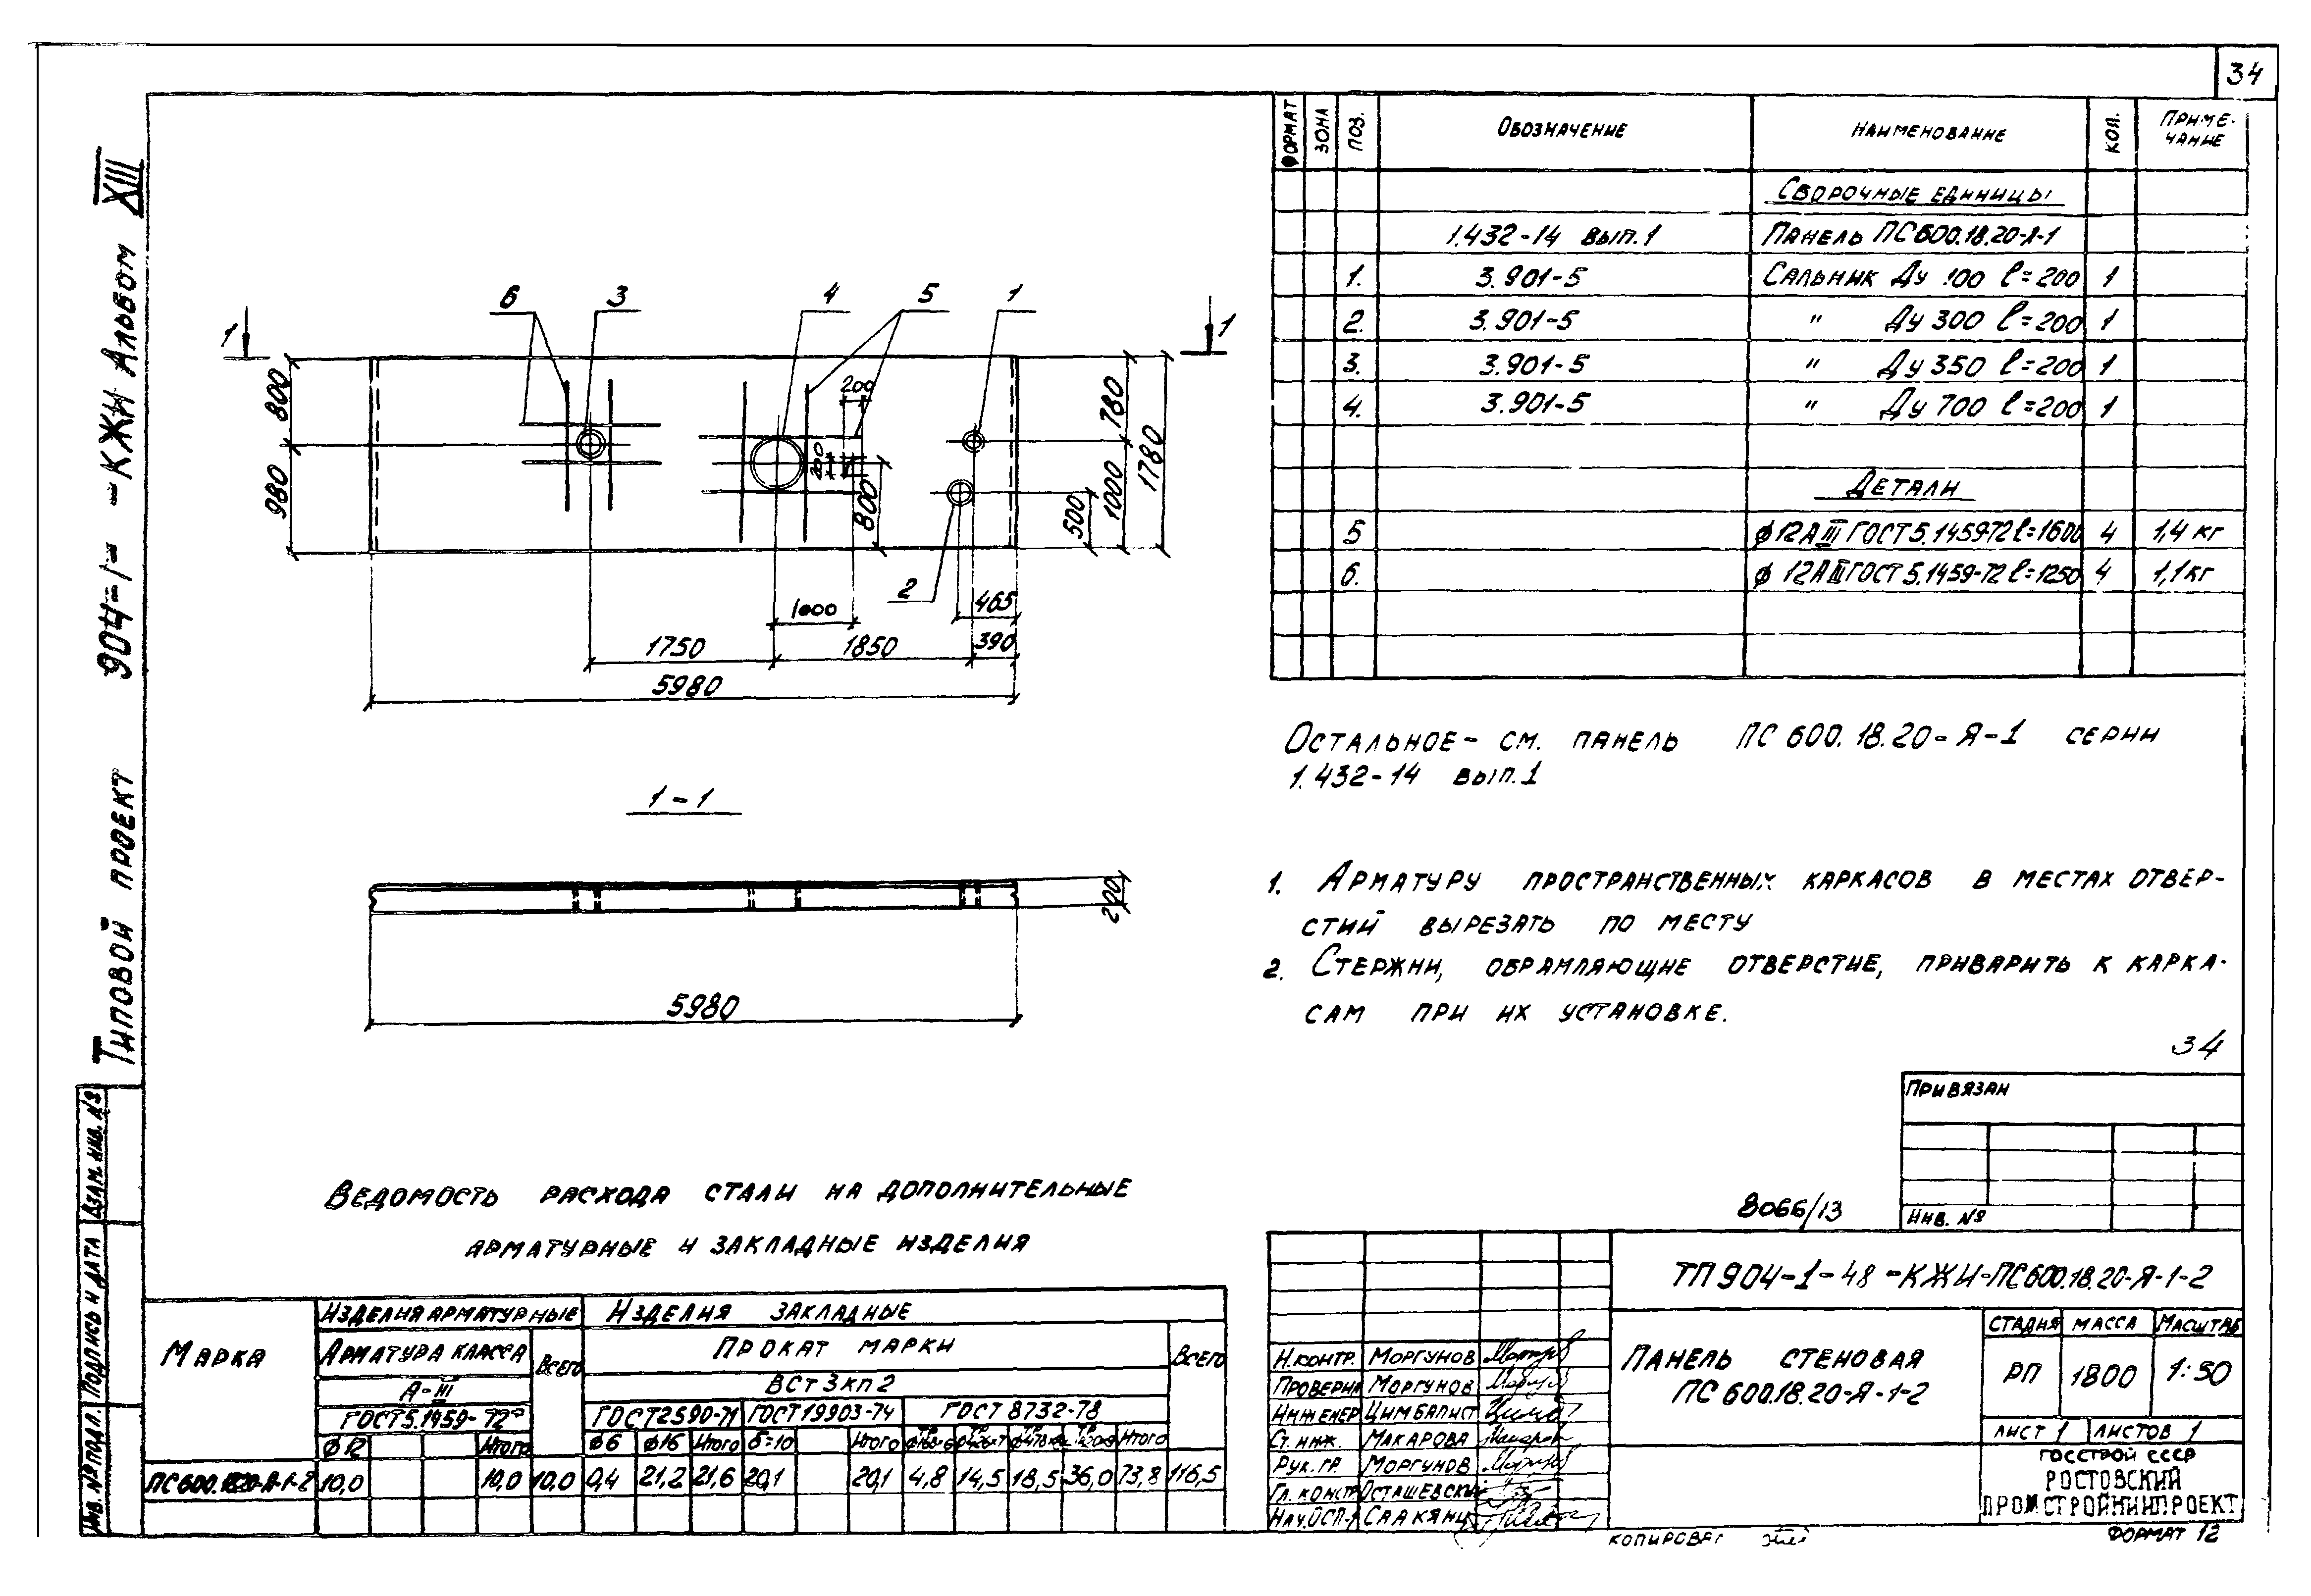 34
Типовой проект 904-1- -КЖИ Альбом XIII
6 3 4 5 1
1 1
800
980
200
200
800
780
1000
1780
500
2
465
1000
1750 1850 390
5980
1-1
200
5980
Формат Зона Поз. Обозначение Наименование Кол. Приме-
чание
Сборочные единицы
1.432-14 вып.1 Панель ПС600.18.20-Я-1
1. 3.901-5 Сальник Ду 100 ℓ=200 1
2. 3.901-5 " Ду 300 ℓ=200 1
3. 3.901-5 " Ду 350 ℓ=200 1
4. 3.901-5 " Ду 700 ℓ=200 1
Детали
5 φ12АIII ГОСТ 5.1459-72 ℓ=1600 4 1,4 кг
6. φ 12АIII ГОСТ 5.1459-72 ℓ=1250 4 1,1кг
Остальное - см. панель ПС 600.18.20-Я-1 серии
1.432-14 вып.1
1. Арматуру пространственных каркасов в местах отвер-
стий вырезать по месту
2. Стержни, обрамляющие отверстие, приварить к карка-
сам при их установке.
34
Привязан
Инв. №
8066/13
Ведомость расхода стали на дополнительные
арматурные и закладные изделия
Марка Изделия арматурные Изделия закладные
Арматура класса Всего Прокат марки Всего
А-III ВСт3кп2
ГОСТ5.1459-72* ГОСТ2590-71 ГОСТ19903-74 ГОСТ 8732-78
φ12 Итого φ6 φ16 Итого δ=10 Итого Итого
ПС600.18.20-Я-1-2 10,0 10,0 10,0 0,4 21,2 21,6 20,1 20,1 4,8 14,5 18,5 36,0 73,8 116,5
ТП904-1-48-КЖИ-ПС600.18.20-Я-1-2
Панель стеновая
ПС 600.18.20-Я-1-2
Стадия Масса Масштаб
РП 1800 1:50
Лист 1 Листов 1
Госстрой СССР
Ростовский
Промстройниипроект
Н.контр. Моргунов
Проверил Моргунов
Инженер Цимбалист
Ст. инж. Макарова
Рук. гр. Моргунов
Гл. констр Осташевский
Нач.ОСП-1 Саакянц
Копировал
Формат 12
Взам. инв. №
Подпись и дата
Инв. № подл.